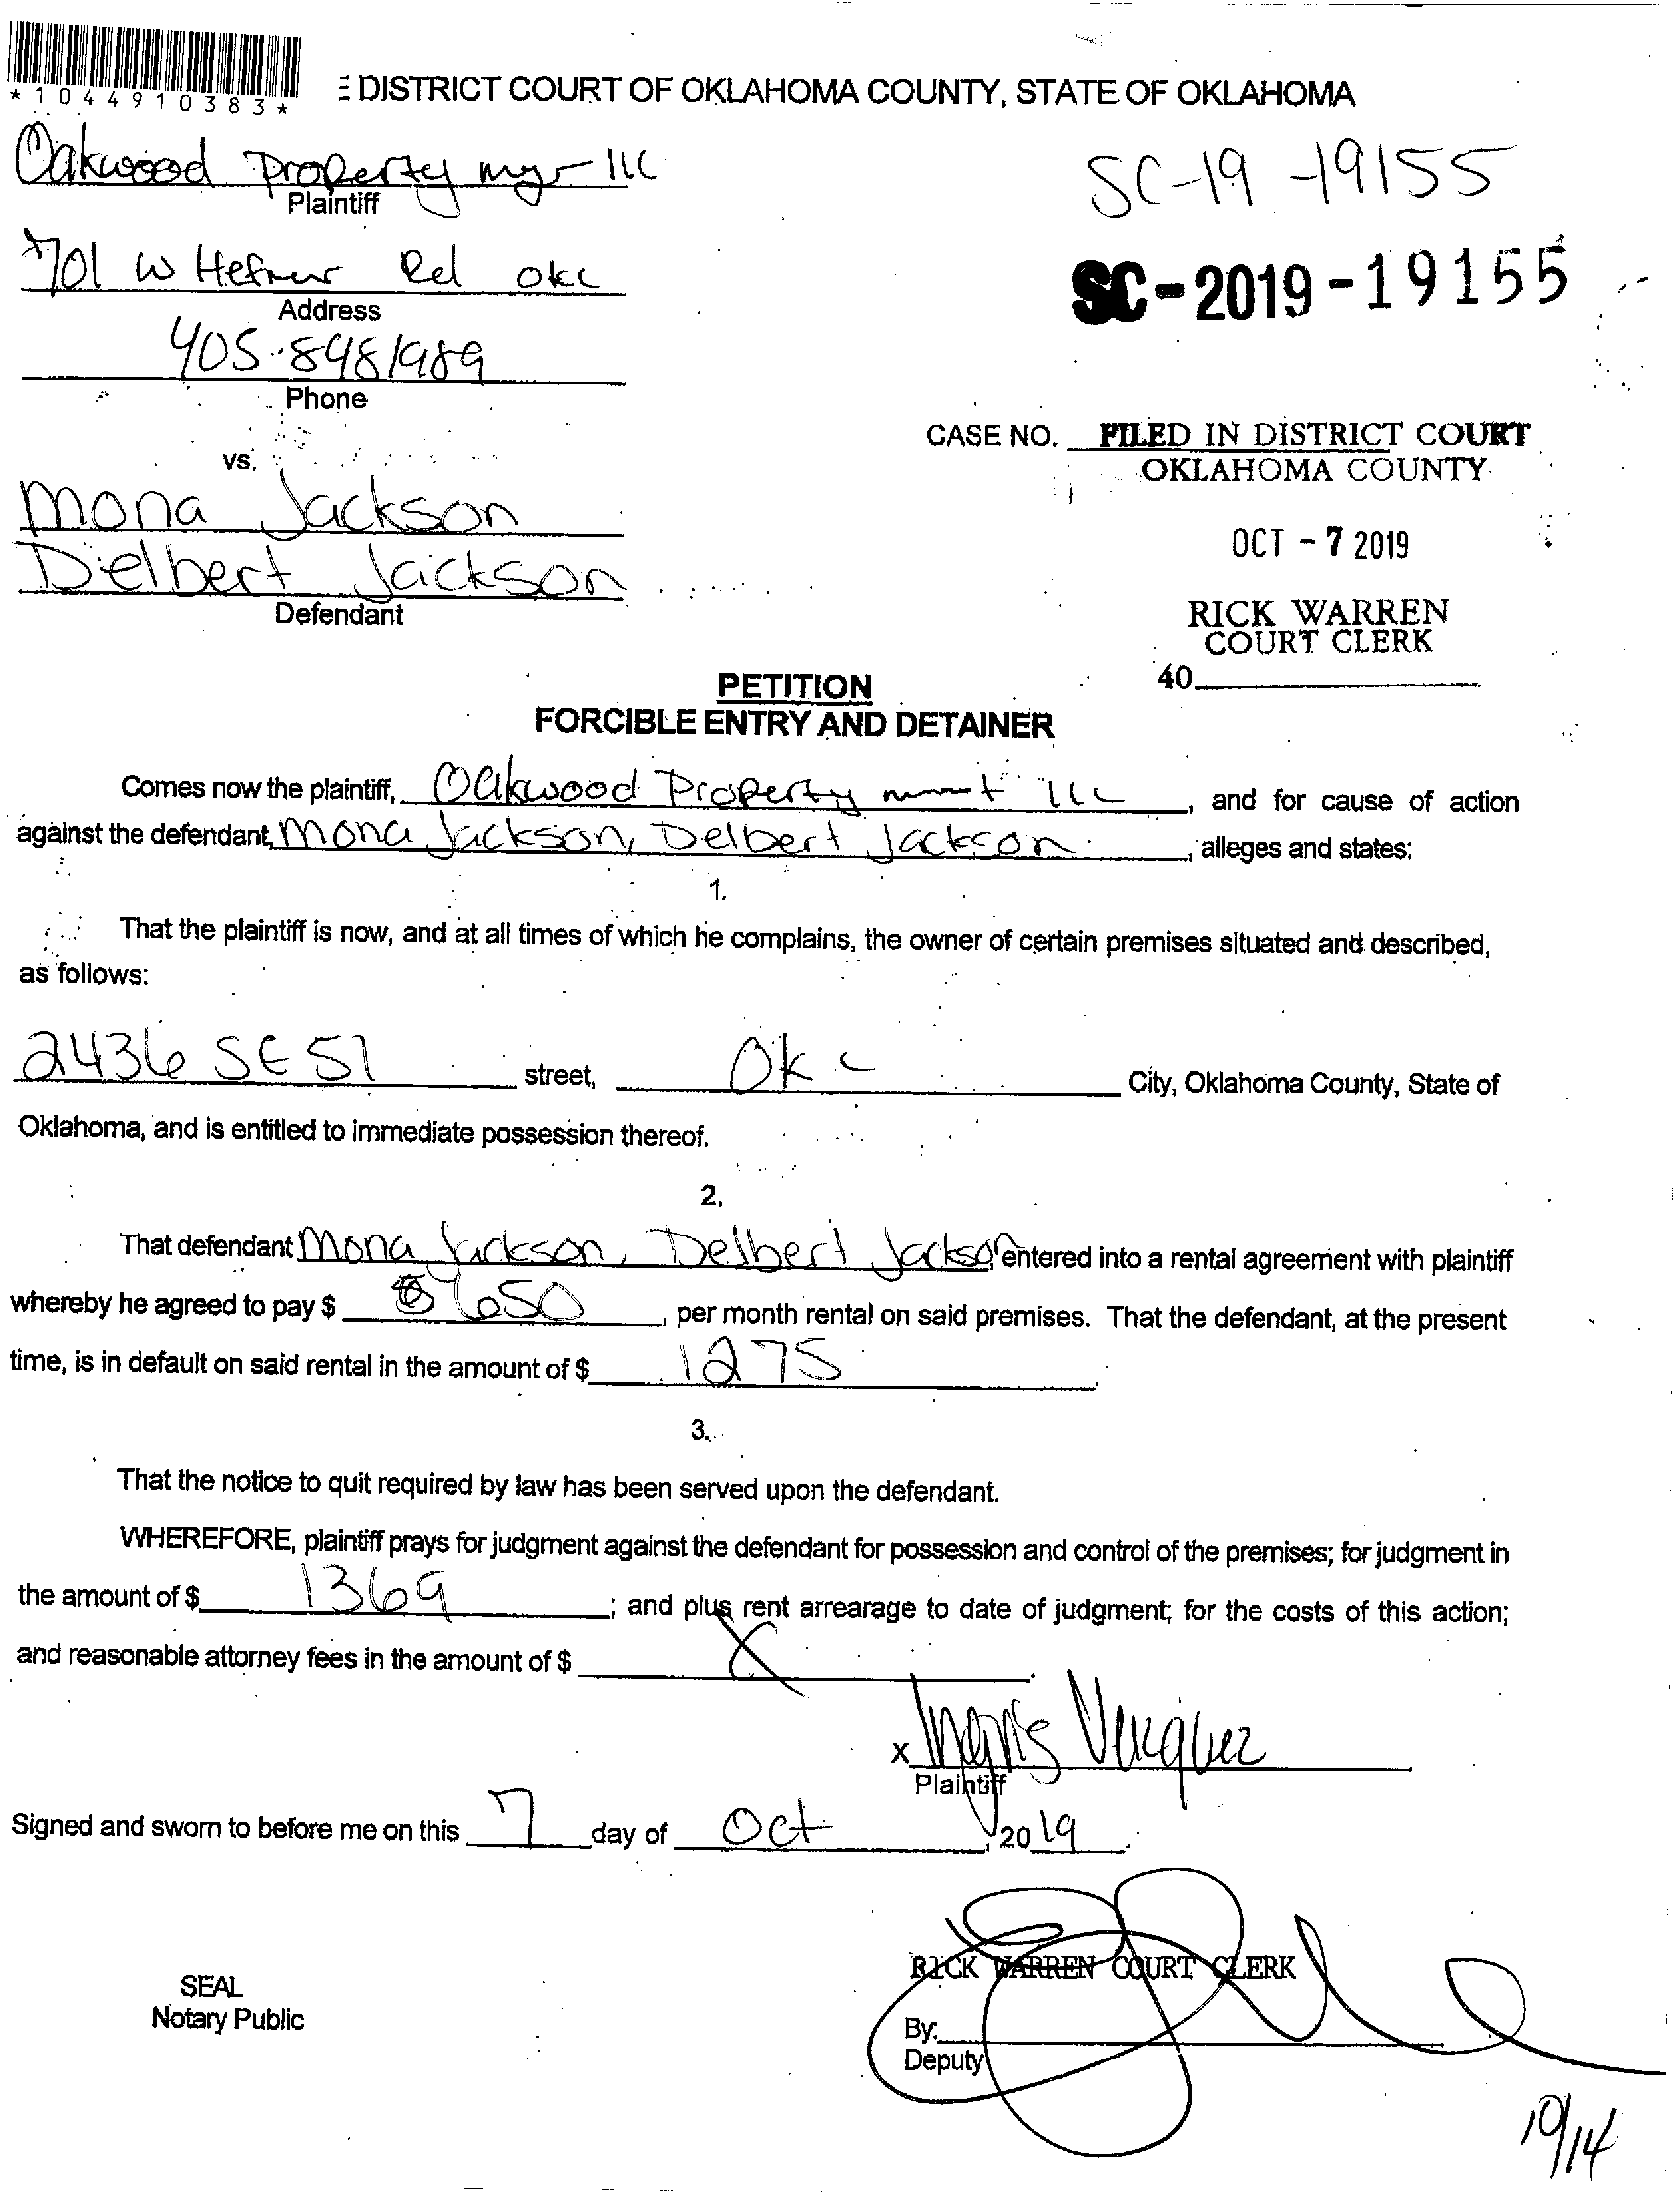 *1044910383*
E DISTRICT COURT OF OKLAHOMA COUNTY, STATE OF OKLAHOMA
Oakwood Property mgr LLC
Plaintiff
SC-19-19155
701 W Hefner Rd OKC
Address
SC-2019-19155
405-8481989
Phone
CASE NO. FILED IN DISTRICT COURT
OKLAHOMA COUNTY
vs.
Mona Jackson
OCT - 7 2019
Delbert Jackson
Defendant
RICK WARREN
COURT CLERK
40
PETITION
FORCIBLE ENTRY AND DETAINER
Comes now the plaintiff, Oakwood Property mmt LLC, and for cause of action
against the defendant, Mona Jackson, Delbert Jackson, alleges and states:
1.
That the plaintiff is now, and at all times of which he complains, the owner of certain premises situated and described,
as follows:
2436 SE 51 street, OKC City, Oklahoma County, State of
Oklahoma, and is entitled to immediate possession thereof.
2.
That defendant Mona Jackson, Delbert Jackson entered into a rental agreement with plaintiff
whereby he agreed to pay $ 650, per month rental on said premises. That the defendant, at the present
time, is in default on said rental in the amount of $ 1275
3.
That the notice to quit required by law has been served upon the defendant.
WHEREFORE, plaintiff prays for judgment against the defendant for possession and control of the premises; for judgment in
the amount of $ 1369; and plus rent arrearage to date of judgment; for the costs of this action;
and reasonable attorney fees in the amount of $
X
Plaintiff
Signed and sworn to before me on this 7 day of Oct, 2019
RICK WARREN COURT CLERK
SEAL
Notary Public
By:
Deputy
10/14